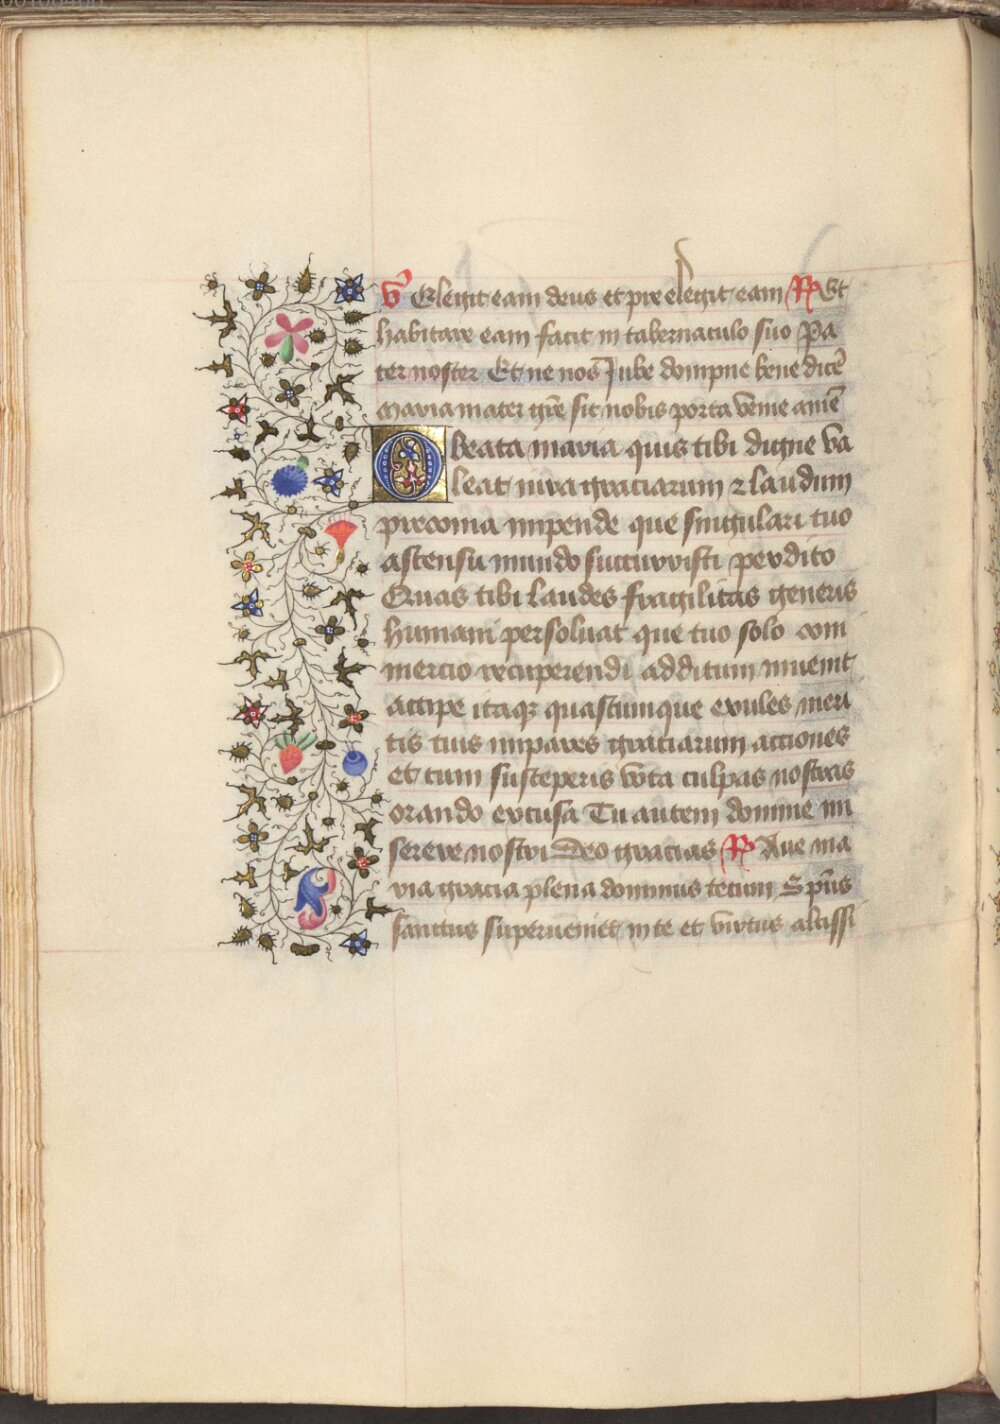 V̄ Elegit eam deus et pre elegit eam R Et
habitare eam facit in tabernaculo suo Pa
ter noster Et ne nos̄ Jube dompne bene dicē
Maria mater grē sit nobis porta venie amē
O beata maria quis tibi digne va
leat iura graciarum ⁊ laudum
preconia impende que singulari tuo
ascensu mundo succurristi perdito
Quas tibi laudes fragilitas generis
humani persoluat que tuo solo com
mercio recuperendi additum inuenit
accipe itaqz quascumque exules meri
tis tuis impares graciarum acciones
et cum susceperis vota culpas nostras
orando excusa Tu autem domine mi
serere nostri Deo gracias R Aue ma
ria gracia plena dominus tecum Spūs
sanctus superueniet in te et virtus altissi